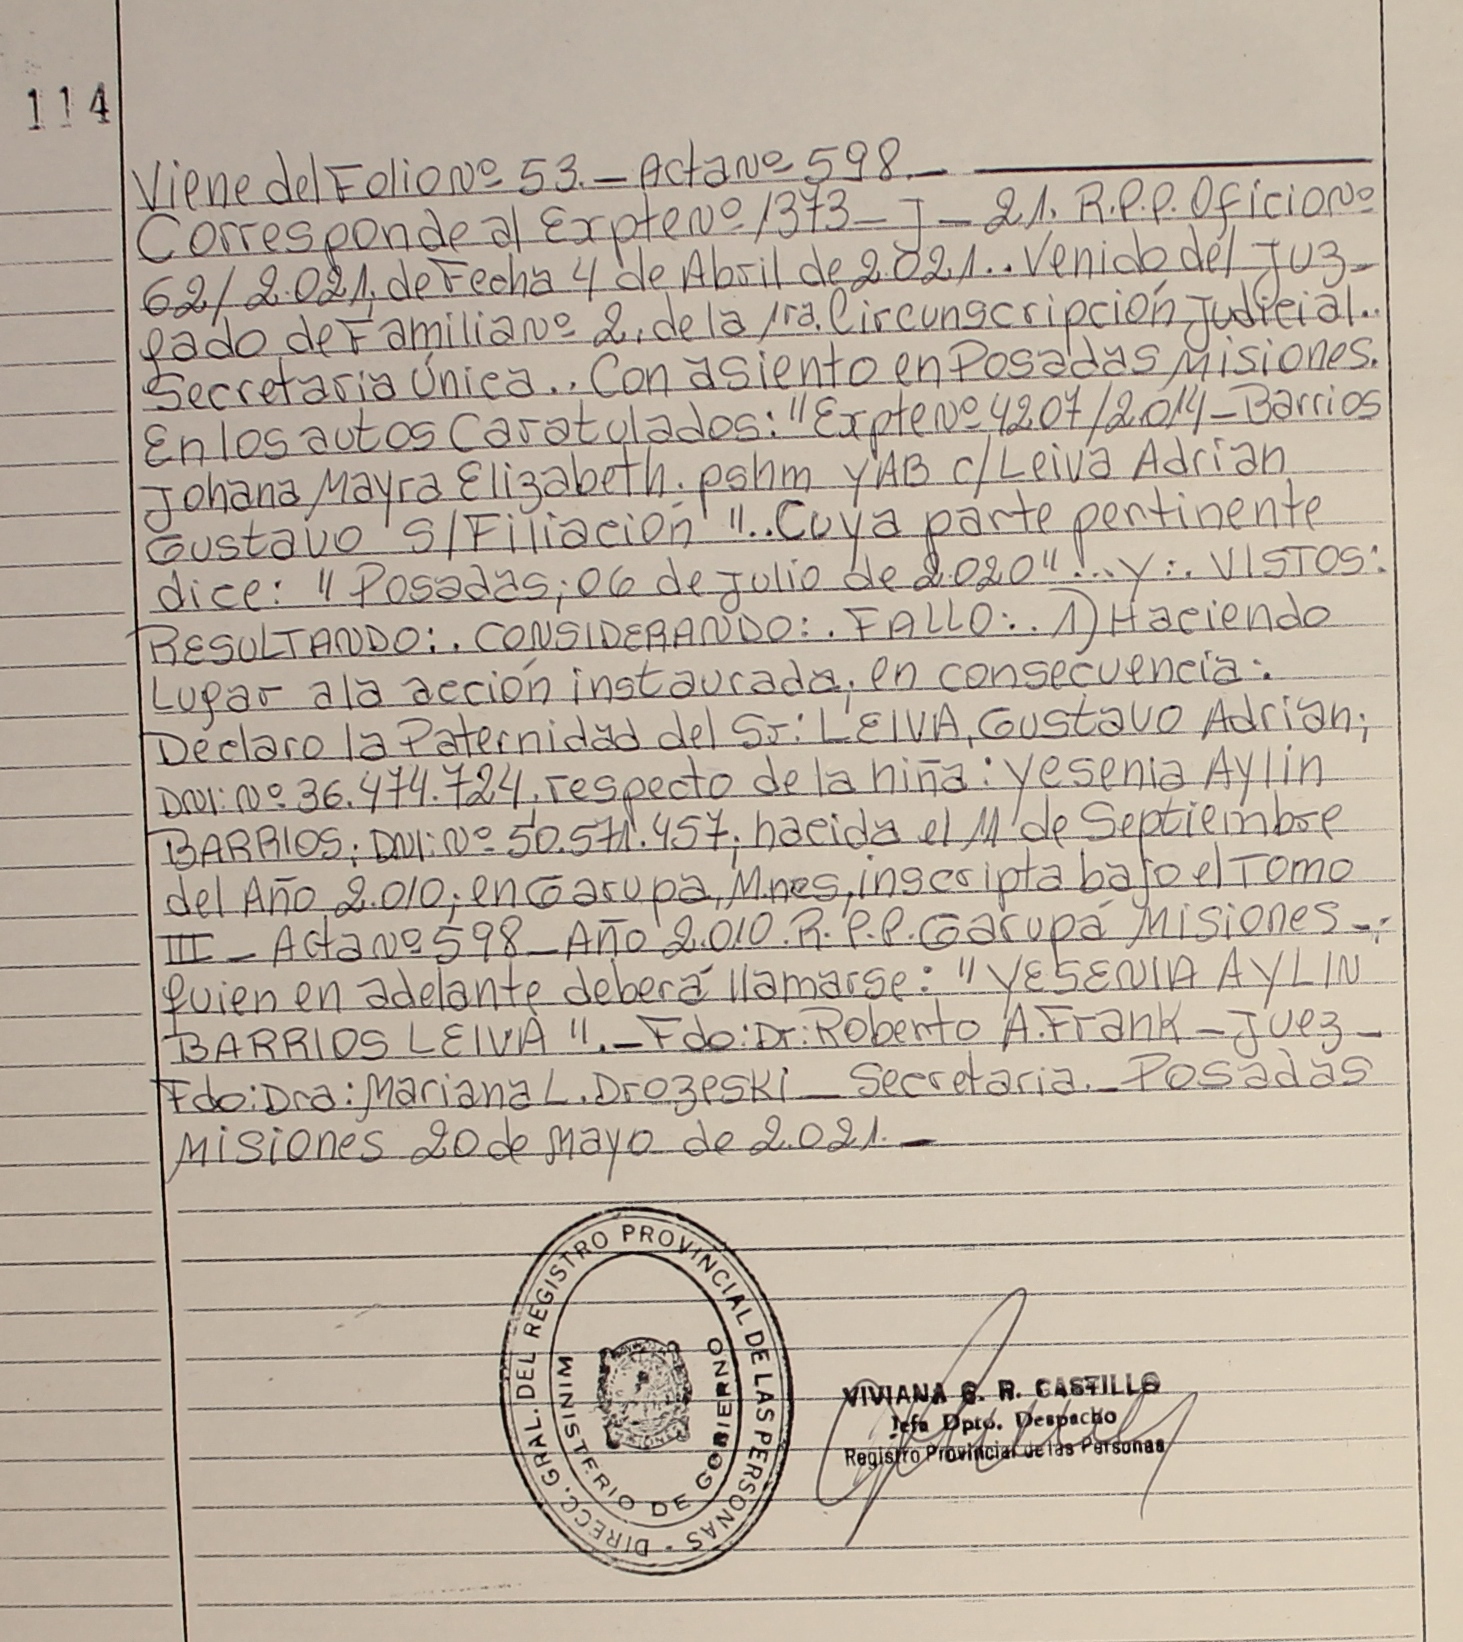 114
Viene del Folio Nº 53.- Acta Nº 598.-
Corresponde al Expte Nº 1373-J-21. R.P.P. Oficio Nº
62/2.021, de Fecha 4 de Abril de 2.021.. Venido del Juz-
gado de Familia Nº 2, de la 1ra. Circunscripción Judicial..
Secretaria Única.. Con asiento en Posadas Misiones.
En los autos Caratulados: "Expte Nº 4207/2.014-Barrios
Johana Mayra Elizabeth. pshm y AB c/ Leiva Adrian
Gustavo S/Filiación"..Cuya parte pertinente
dice: "Posadas; 06 de Julio de 2.020"...y:. VISTOS:
RESULTANDO:. CONSIDERANDO:. FALLO:. 1) Haciendo
Lugar a la acción instaurada; en consecuencia:
Declaro la Paternidad del Sr: LEIVA, Gustavo Adrian;
DNI: Nº 36.474.724, respecto de la niña: Yesenia Aylin
BARRIOS; DNI: Nº 50.571.457; nacida el 11 de Septiembre
del Año 2.010; en Garupa, Mnes, inscripta bajo el Tomo
III - Acta Nº 598 - Año 2.010. R.P.P. Garupá Misiones-;
quien en adelante deberá llamarse: "YESENIA AYLIN
BARRIOS LEIVA".- Fdo: Dr: Roberto A. Frank - Juez -
Fdo: Dra: Mariana L. Drozeski - Secretaria.- Posadas
Misiones 20 de Mayo de 2.021.-
DIRECC. GRAL. DEL REGISTRO PROVINCIAL DE LAS PERSONAS
MINISTERIO DE GOBIERNO
VIVIANA G. R. CASTILLO
Jefa Dpto. Despacho
Registro Provincial de las Personas